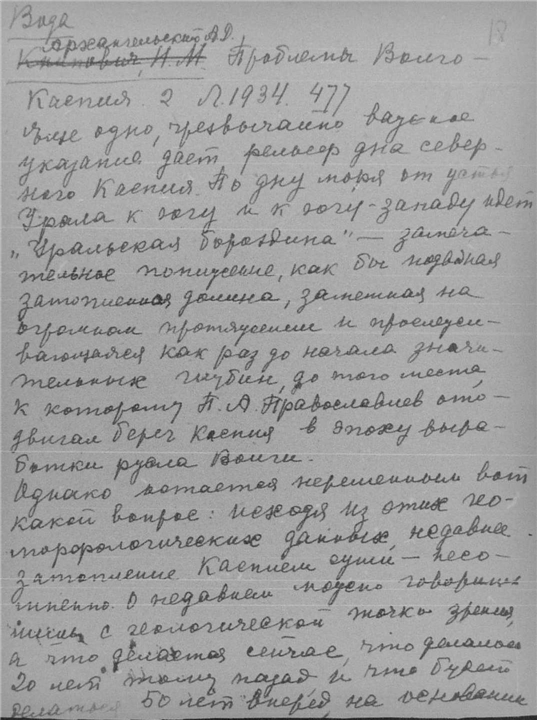 Вода
Архангельский А.Д.
Книпович, Н.М. Проблемы Волго-
Каспия. 2 Л. 1934. 477
18
Еще одно, чрезвычайно важное
указание дает рельеф дна север-
ного Каспия. По дну моря от устья
Урала к югу и к юго-западу идет
"Уральская бороздина" — замеча-
тельное понижение, как бы подводная
затопленная долина, заметная на
огромном протяжении и прослежи-
вающаяся как раз до начала значи-
тельных глубин, до того места,
к которому П.А. Православлев ото-
двигал берег Каспия в эпоху выра-
ботки русла Волги.
Однако остается нерешенным вот
какой вопрос: исходя из этих гео-
морфологических данных, недавнее
затопление Каспием суши — несо-
мненно. О недавнем можно говорить
лишь с геологической точки зрения,
а что делается сейчас, что делалось
20 лет тому назад и что будет
делаться 50 лет вперед, на основании